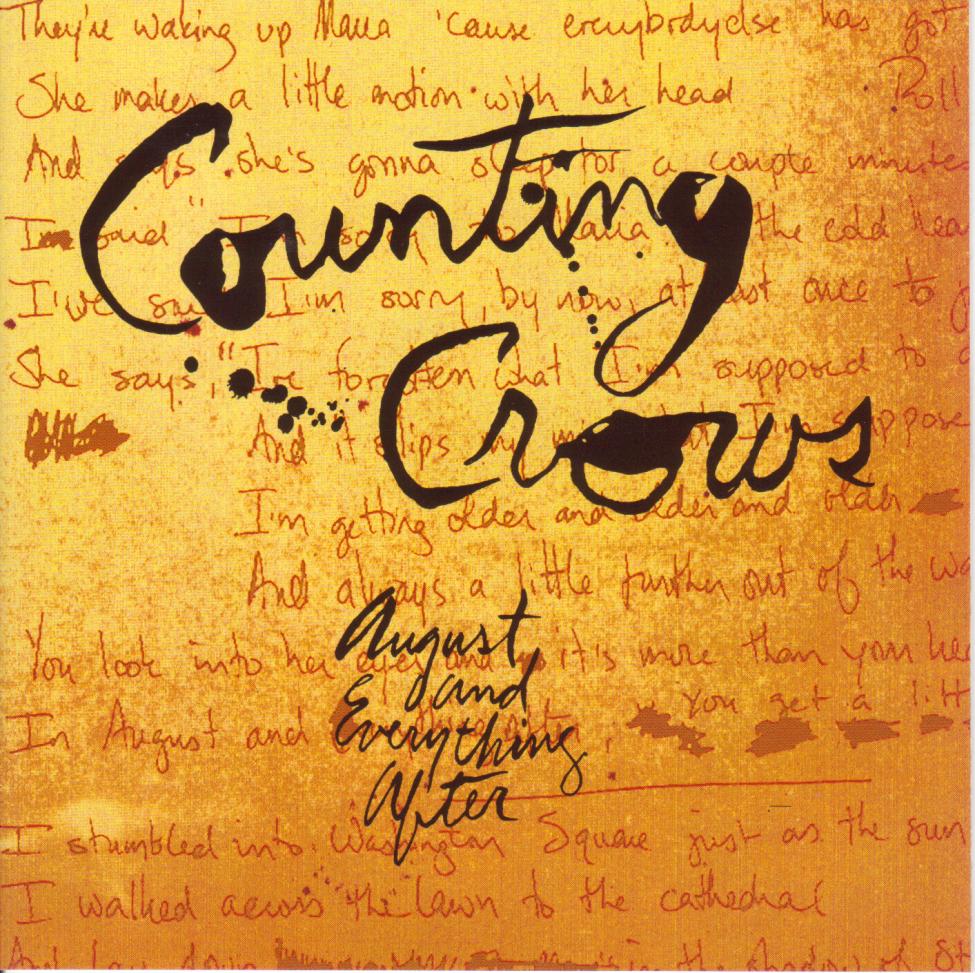 They're waking up Maria 'cause everybodyelse has got
She makes a little motion with her head Roll
And says she's gonna sleep for a couple minutes
Counting
I'm said "I'm sorry to Maria the cold hear
I've said I'm sorry, by now, at least once to
She says, "I've forgotten what I'm supposed to
Crows
And it slips my mind what I'm suppose
I'm getting older and older and older
And always a little further out of the wa
August
You look into her eyes and it's more than your hea
and
You get a litt
In August and
Everything
After
I stumbled into Washington Square just as the sun
I walked across the lawn to the cathedral
And lay down in the shadow of St